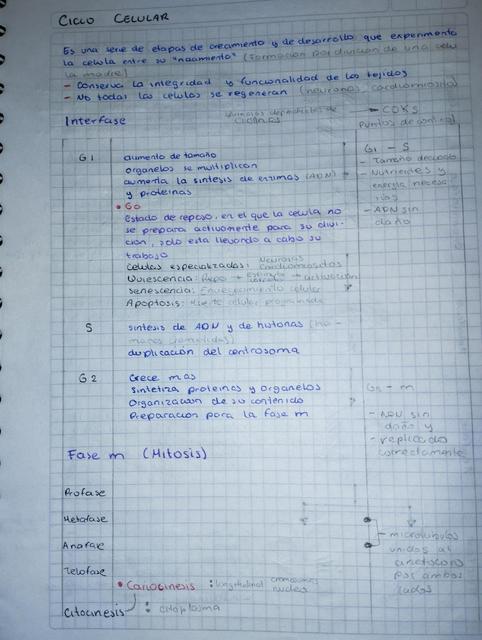 CICLO CELULAR
Es una serie de etapas de crecimiento y de desarrollo que experimenta
la celula entre su "nacimiento" (formacion por division de una celu
la madre)
- Conserva la integridad y funcionalidad de los tejidos
- No todas las celulas se regeneran (neuronas, cardiomiocitos)
Interfase
quinasas dependientes de
ciclinas
CDKs
puntos de control
G1
aumento de tamaño
organelos se multiplican
aumenta la sintesis de enzimas (ADN)
y proteinas
• G0
Estado de reposo, en el que la celula no
se prepara activamente para su divi-
cion, solo esta llevando a cabo su
trabajo
Celulas especializadas: Neuronas
Cardiomiocitos
Quiescencia: Repo → →
Senescencia: Envejecimiento celular
Apoptosis: Muerte celular programada
G1 - S
- Tamaño
- Nutrientes y
energia necesa
rias
- ADN sin
daño
S
sintesis de ADN y de histonas
duplicación del centrosoma
G2
Crece mas
Sintetiza proteinas y organelos
Organizacion de su contenido
Preparacion para la fase m
G2 - m
- ADN sin
daño y
- replicado
correctamente
Fase m (Mitosis)
Profase
Metafase
Anafase
Telofase
- microtubulos
unidos al
cinetocoro
por ambos
lados
• Cariocinesis : cromosomas
nucleo
Citocinesis : citoplasma